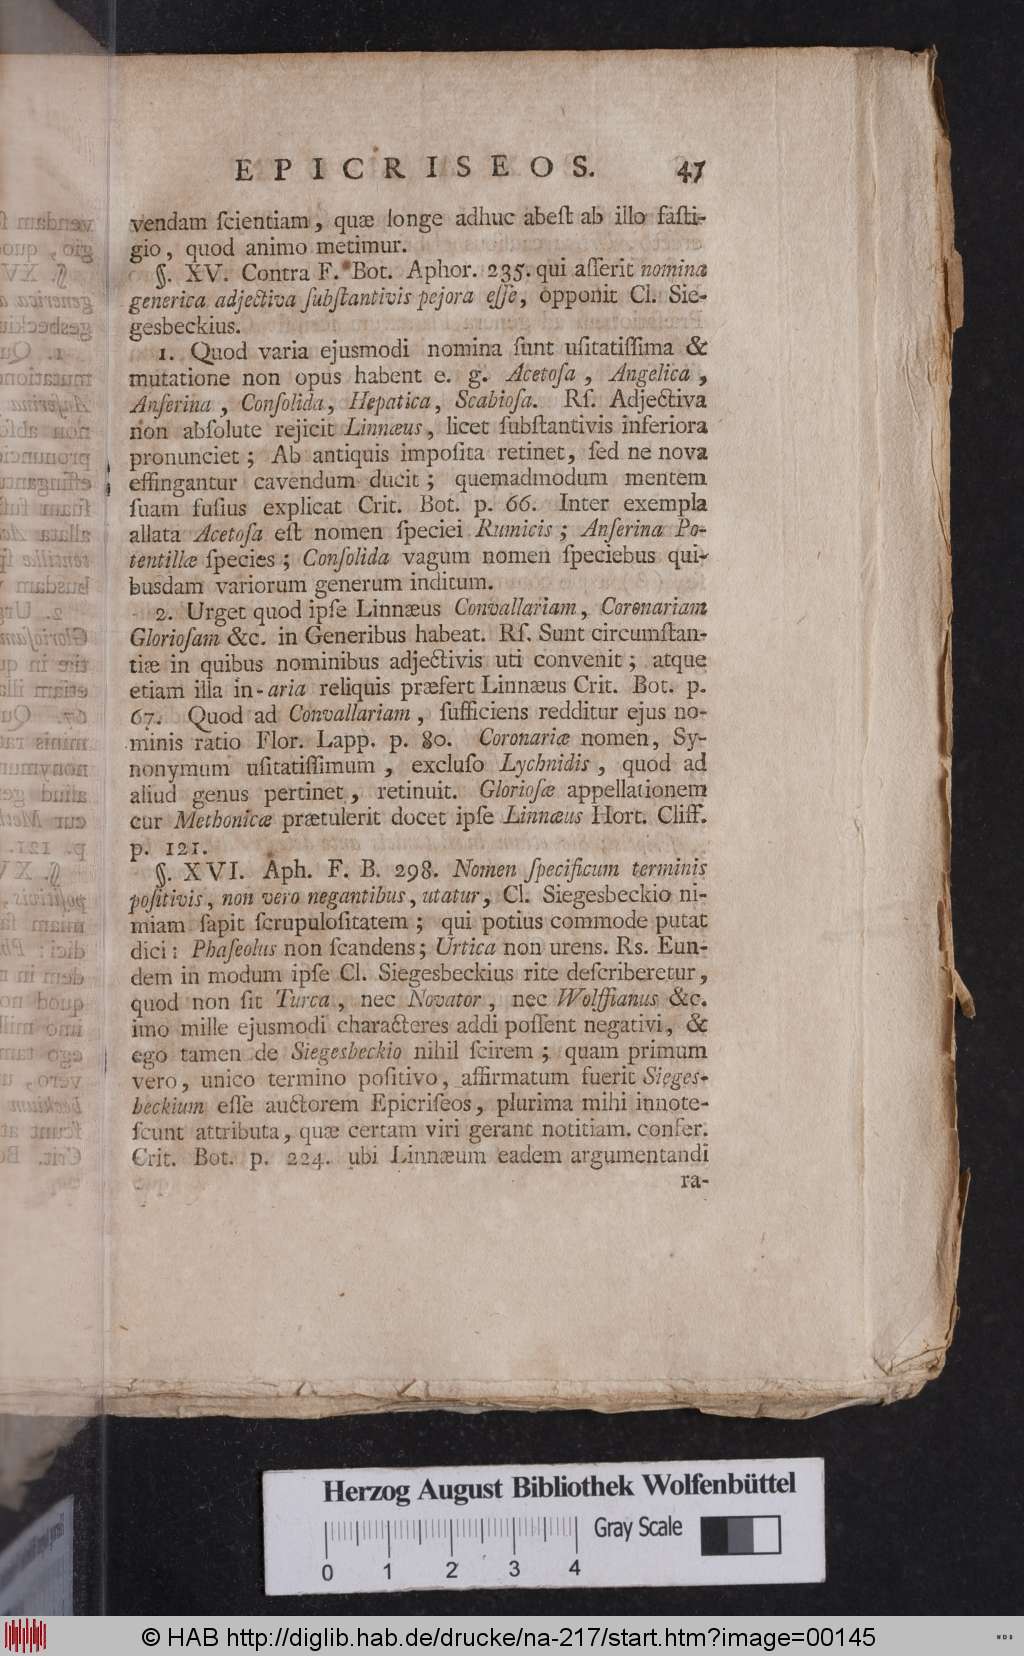 EPICRISEOS. 47
vendam ſcientiam, quæ longe adhuc abeſt ab illo faſti-
gio, quod animo metimur.
§. XV. Contra F. Bot. Aphor. 235. qui aſſerit nomina
generica adjectiva ſubſtantivis pejora eſſe, opponit Cl. Sie-
gesbeckius.
1. Quod varia ejusmodi nomina ſunt uſitatiſſima &
mutatione non opus habent e. g. Acetoſa, Angelica,
Anſerina, Conſolida, Hepatica, Scabioſa. Rſ. Adjectiva
non abſolute rejicit Linnæus, licet ſubſtantivis inferiora
pronunciet; Ab antiquis impoſita retinet, ſed ne nova
effingantur cavendum ducit; quemadmodum mentem
ſuam fuſius explicat Crit. Bot. p. 66. Inter exempla
allata Acetoſa eſt nomen ſpeciei Rumicis; Anſerina Po-
tentillæ ſpecies; Conſolida vagum nomen ſpeciebus qui-
busdam variorum generum inditum.
2. Urget quod ipſe Linnæus Convallariam, Coronariam
Glorioſam &c. in Generibus habeat. Rſ. Sunt circumſtan-
tiæ in quibus nominibus adjectivis uti convenit; atque
etiam illa in-aria reliquis præfert Linnæus Crit. Bot. p.
67. Quod ad Convallariam, ſufficiens redditur ejus no-
minis ratio Flor. Lapp. p. 80. Coronariæ nomen, Sy-
nonymum uſitatiſſimum, excluſo Lychnidis, quod ad
aliud genus pertinet, retinuit. Glorioſæ appellationem
cur Methonicæ prætulerit docet ipſe Linnæus Hort. Cliff.
p. 121.
§. XVI. Aph. F. B. 298. Nomen ſpecificum terminis
poſitivis, non vero negantibus, utatur, Cl. Siegesbeckio ni-
miam ſapit ſcrupuloſitatem; qui potius commode putat
dici: Phaſeolus non ſcandens; Urtica non urens. Rs. Eun-
dem in modum ipſe Cl. Siegesbeckius rite deſcriberetur,
quod non ſit Turca, nec Novator, nec Wolffianus &c.
imo mille ejusmodi characteres addi poſſent negativi, &
ego tamen de Siegesbeckio nihil ſcirem; quam primum
vero, unico termino poſitivo, affirmatum fuerit Sieges-
beckium eſſe auctorem Epicriſeos, plurima mihi innote-
ſcunt attributa, quæ certam viri gerant notitiam. confer.
Crit. Bot. p. 224. ubi Linnæum eadem argumentandi
ra-
Herzog August Bibliothek Wolfenbüttel
Gray Scale
0 1 2 3 4
© HAB http://diglib.hab.de/drucke/na-217/start.htm?image=00145